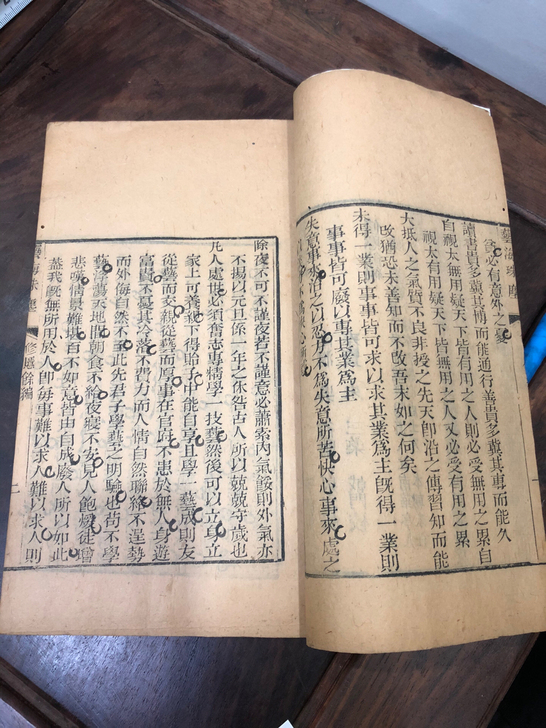 為必有意外之
讀書貴多冀其博而能通行善貴多冀其專而能久
自視太無用疑天下皆有用之人則必受無用之累自
視太有用疑天下皆無用之人又必受有用之累
大抵人之氣質不良非授之先天卽治之傳習知而能
改猶恐未善知而不改吾末如之何矣
未得一業則事事皆可求以求其業為主旣得一業則
事事皆可廢以專其業為主
失意事來治之以忍方不為失意所苦快心事來處之
除夜不可不謹夜若不謹意必蕭索內氣餒則外氣亦
不揚以元旦係一年之休咎古人所以兢兢守歲也
凡人處世必須奮志專精學一技藝然後可以立身立
家上可養親下得貽子中能自享學一藝成則友
從藝而交親從藝而厚事在官賤不患於無人身遊
富貴不憂其冷落不費力而人情自然聯絡不呈勢
而外侮自然不至此先君子學藝之明驗也苟不學
藝落魄天地間朝食不給夜寢不安見人飽煖徒增
悲感情景難堪百不如意皆由自成廢人所以如此
蓋我旣無所用於人卽每事難以求人難以求人則
藝海珠塵
修慝餘編
二